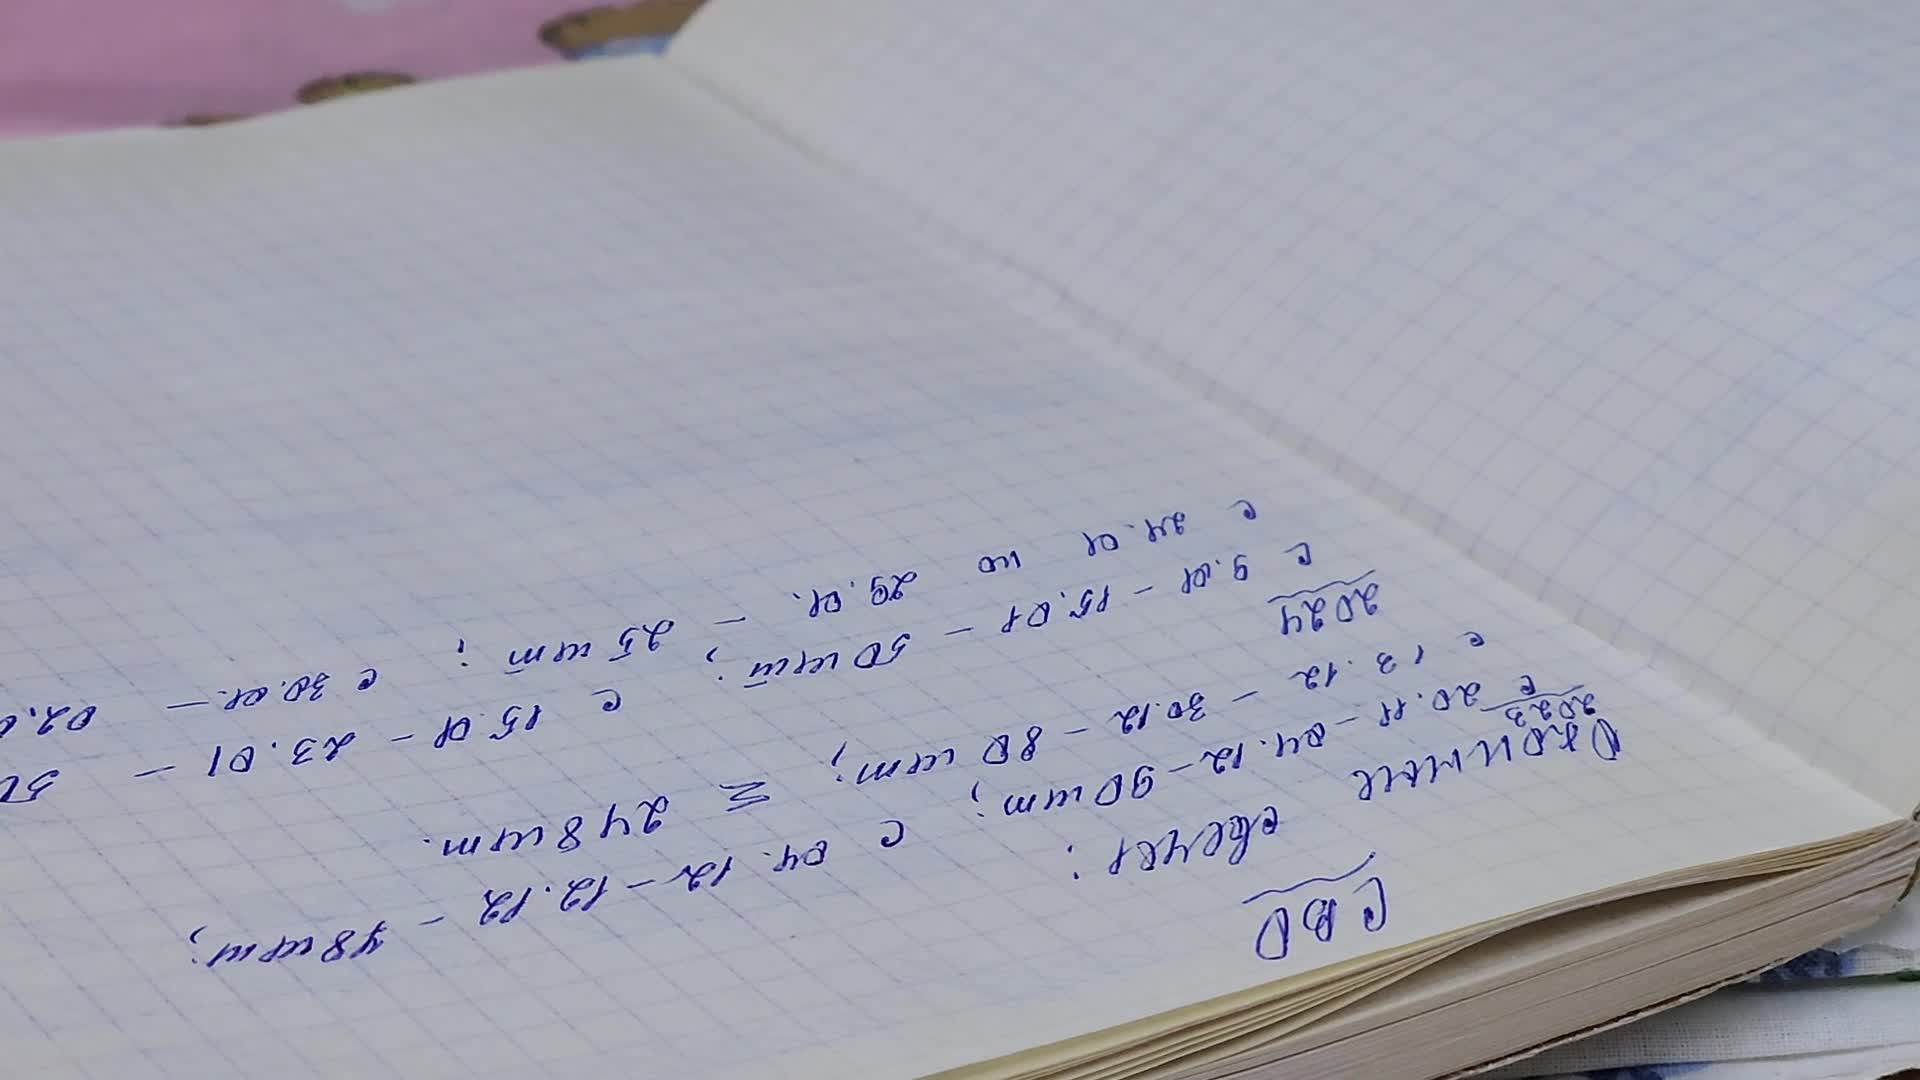 СВО
Окопные свечи:
2023
с 20.11 - 04.12 - 90 шт; с 04.12 - 12.12 - 78 шт;
с 13.12 - 30.12 - 80 шт; Σ 248 шт.
2024
с 9.01 - 15.01 - 50 шт; с 15.01 - 23.01 - 50
с 24.01 по 29.01. - 25 шт; с 30.01. - 02.0